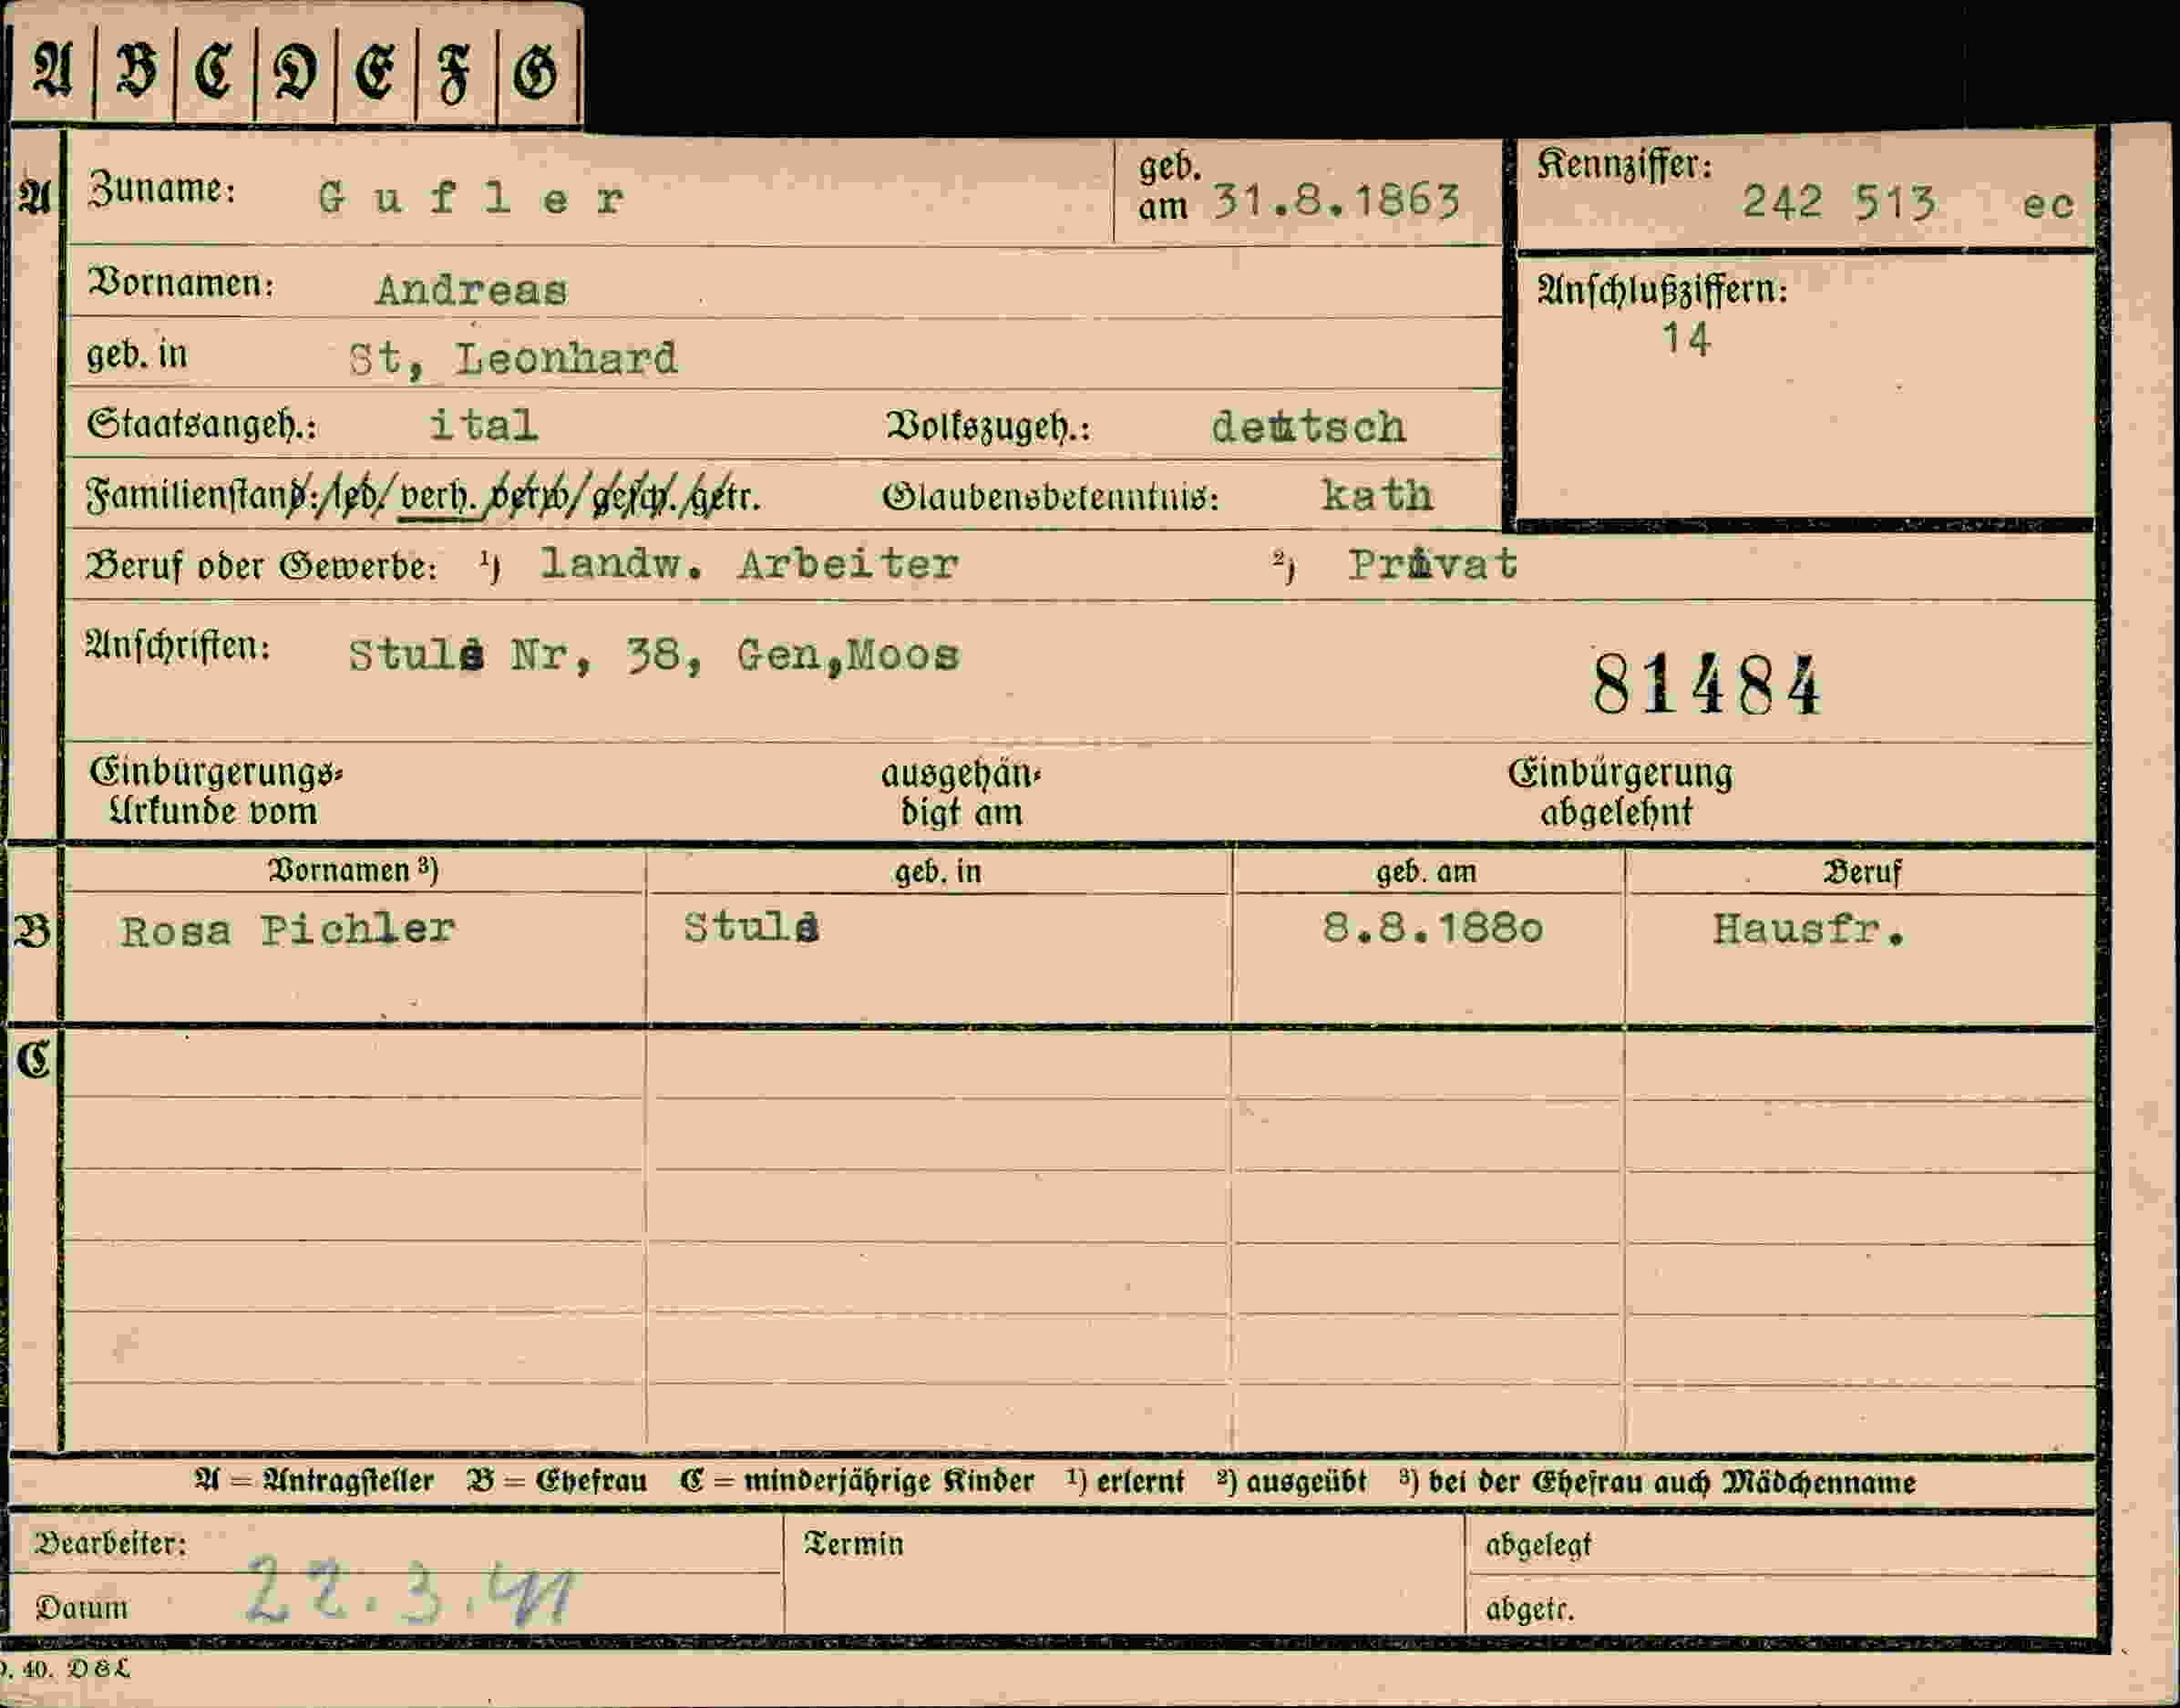 A B C D E F G
A Zuname: Gufler geb. am 31.8.1863 Kennziffer: 242 513 ec
Vornamen: Andreas Anschlußziffern: 14
geb. in St, Leonhard
Staatsangeh.: ital Volkszugeh.: deutsch
Familienstand: led. verh. verw. gesch. getr. Glaubensbekenntnis: kath
Beruf oder Gewerbe: ¹) landw. Arbeiter ²) Privat
Anschriften: Stuls Nr, 38, Gen,Moos 81484
Einbürgerungs- ausgehän- Einbürgerung
Urkunde vom digt am abgelehnt
Vornamen ³) geb. in geb. am Beruf
B Rosa Pichler Stuls 8.8.188o Hausfr.
C
A = Antragsteller B = Ehefrau C = minderjährige Kinder ¹) erlernt ²) ausgeübt ³) bei der Ehefrau auch Mädchenname
Bearbeiter: Termin abgelegt
Datum 22.3.41 abgetr.
40. D&L